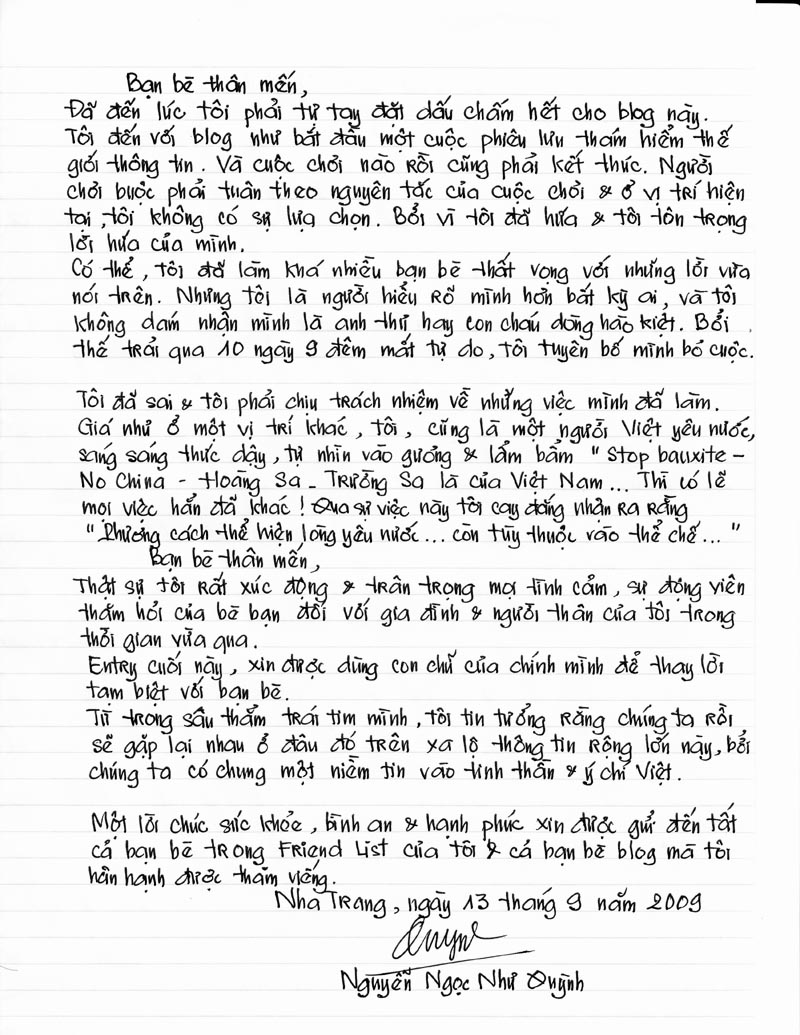 Bạn bè thân mến,
Đã đến lúc tôi phải tự tay đặt dấu chấm hết cho blog này.
Tôi đến với blog như bắt đầu một cuộc phiêu lưu thám hiểm thế
giới thông tin. Và cuộc chơi nào rồi cũng phải kết thúc. Người
chơi buộc phải tuân theo nguyên tắc của cuộc chơi & ở vị trí hiện
tại, tôi không có sự lựa chọn. Bởi vì tôi đã hứa & tôi tôn trọng
lời hứa của mình.
Có thể, tôi đã làm khá nhiều bạn bè thất vọng với những lời vừa
nói trên. Nhưng tôi là người hiểu rõ mình hơn bất kỳ ai, và tôi
không dám nhận mình là anh thư hay con cháu dòng hào kiệt. Bởi
thế trải qua 10 ngày 9 đêm mất tự do, tôi tuyên bố mình bỏ cuộc.
Tôi đã sai & tôi phải chịu trách nhiệm về những việc mình đã làm.
Giá như ở một vị trí khác, tôi, cũng là một người Việt yêu nước,
sáng sáng thức dậy, tự nhìn vào gương & lẩm bẩm "Stop bauxite -
No China - Hoàng Sa - Trường Sa là của Việt Nam... Thì có lẽ
mọi việc hẳn đã khác! Qua sự việc này tôi cay đắng nhận ra rằng
"Phương cách thể hiện lòng yêu nước... còn tùy thuộc vào thể chế..."
Bạn bè thân mến,
Thật sự tôi rất xúc động & trân trọng mọi tình cảm, sự động viên
thăm hỏi của bè bạn đối với gia đình & người thân của tôi trong
thời gian vừa qua.
Entry cuối này, xin được dùng con chữ của chính mình để thay lời
tạm biệt với bạn bè.
Từ trong sâu thẳm trái tim mình, tôi tin tưởng rằng chúng ta rồi
sẽ gặp lại nhau ở đâu đó trên xa lộ thông tin rộng lớn này, bởi
chúng ta có chung một niềm tin vào tinh thần & ý chí Việt.
Một lời chúc sức khỏe, bình an & hạnh phúc xin được gửi đến tất
cả bạn bè trong Friend List của tôi & cả bạn bè blog mà tôi
hân hạnh được thăm viếng.
Nha Trang, ngày 13 tháng 9 năm 2009
Quỳnh
Nguyễn Ngọc Như Quỳnh